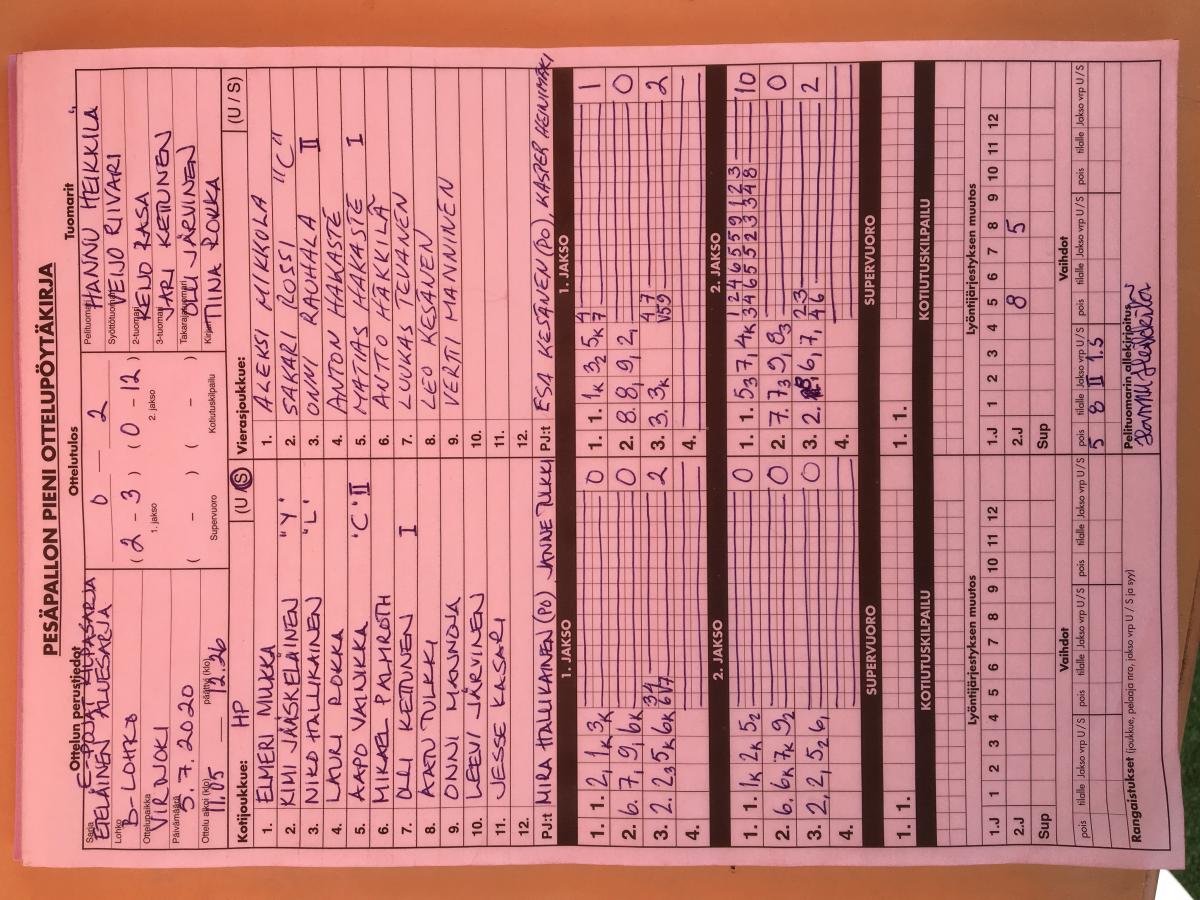 PESÄPALLON PIENI OTTELUPÖYTÄKIRJA
Ottelun perustiedot
Ottelutulos
Tuomarit
Sarja
ETELÄINEN ALUESARJA
Lohko
B-LOHKO
Ottelupaikka
VIRNOKI
Päivämäärä
5.7.2020
Ottelu alkoi (klo) päättyi (klo)
11.05 12.26
0 — 2
( 2 – 3 ) ( 0 – 12 )
1. jakso 2. jakso
( – ) ( – )
Supervuoro Kotiutuskilpailu
Pelituomari HANNU HEIKKILÄ
Syöttötuomari VEIJO RIIVARI
2-tuomari KEIJO RASA
3-tuomari JARI KETUNEN
Takarajatuomari OLLI JÄRVINEN
Kirjuri TIINA ROKKA
Kotijoukkue: HP (U / S)
1. ELMERI MUKKA
2. KIMI JÄÄSKELÄINEN "Y"
3. NIKO HALLIKAINEN "L"
4. LAURI ROKKA
5. AAPO VAINIKKA "C" II
6. MIKAEL PALMROTH
7. OLLI KETTUNEN I
8. AATU TULKKI
9. ONNI MANNOLA
10. LEEVI JÄRVINEN
11. JESSE KASARI
12.
PJ:t MIRA HALLIKAINEN (PO) JANNE TULKKI
Vierasjoukkue: (U / S)
1. ALEKSI MIKKOLA
2. SAKARI ROSSI "C"
3. ONNI RAUHALA II
4. ANTON HAKASTE
5. MATIAS HAKASTE I
6. ANTTO HÄKKILÄ
7. LUUKAS TEVANEN
8. LEO KESÄNEN
9. VERTI MANNINEN
10.
11.
12.
PJ:t ESA KESÄNEN (PO), KASPER HEINIMÄKI
1. JAKSO
1. 1. 2, 1K 3K 0
2. 6. 7, 9, 6K 0
3. 2. 23 5K 6K 2
4.
1. JAKSO
1. 1. 1K 32 5K 1
2. 8. 8, 9, 2, 0
3. 3. 3K 2
4.
2. JAKSO
1. 1. 1K 2K 52 0
2. 6. 6K 7K 92 0
3. 2, 2, 52 6, 0
4.
2. JAKSO
1. 1. 53 7, 4K 10
2. 7. 73 9, 83 0
3. 2. 6, 7, 2
4.
SUPERVUORO
1. 1.
SUPERVUORO
1. 1.
KOTIUTUSKILPAILU
KOTIUTUSKILPAILU
Lyöntijärjestyksen muutos
1.J 1 2 3 4 5 6 7 8 9 10 11 12
2.J
Sup
Lyöntijärjestyksen muutos
1.J 1 2 3 4 5 6 7 8 9 10 11 12
2.J 8 5
Sup
Vaihdot
pois tilalle Jakso vrp U/S pois tilalle Jakso vrp U/S pois tilalle Jakso vrp U/S
Vaihdot
pois tilalle Jakso vrp U/S pois tilalle Jakso vrp U/S pois tilalle Jakso vrp U/S
5 8 II 1.S
Rangaistukset (joukkue, pelaaja nro, jakso vrp U / S ja syy)
Pelituomarin allekirjoitus
Hannu Heikkilä